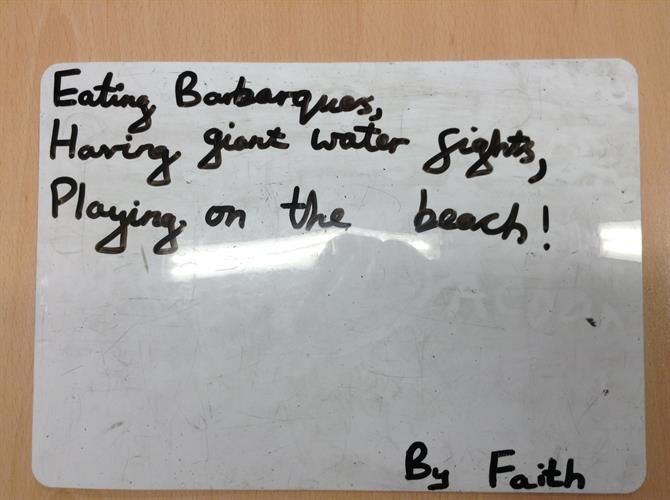 Eating Barbarques,
Having giant water fights,
Playing on the beach!
By Faith